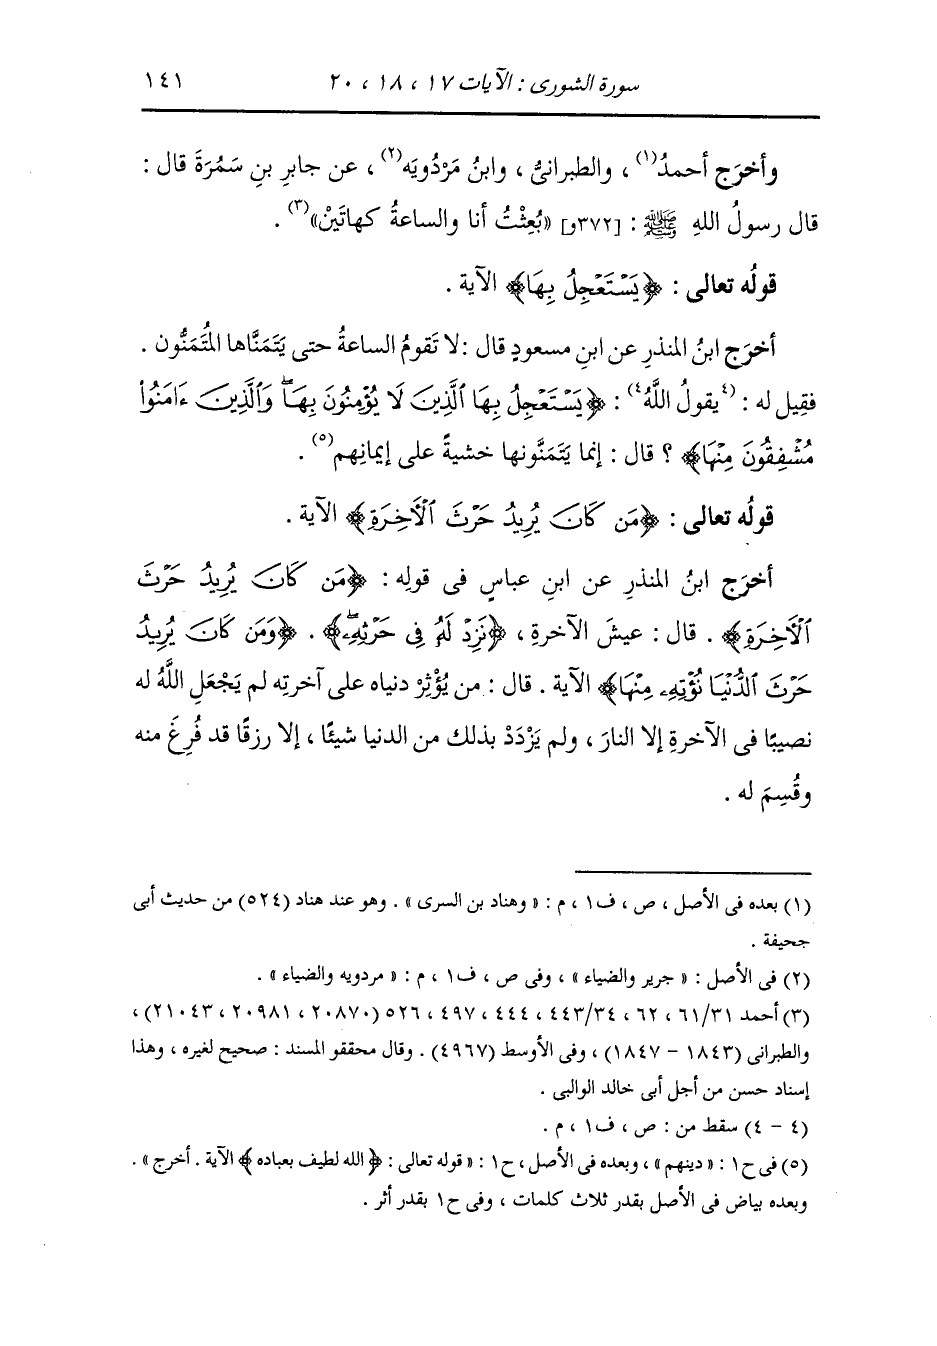 سورة الشورى : الآيات ١٧ ، ١٨ ، ٢٠ ١٤١
وأخرَج أحمدُ(١) ، والطبرانىُّ ، وابنُ مَرْدُويَه(٢) ، عن جابرِ بنِ سَمُرَةَ قال :
قال رسولُ اللهِ ﷺ : [٣٧٢و] «بُعثْتُ أنا والساعةُ كهاتَيْنِ»(٣) .
قولُه تعالى : ﴿يَسْتَعْجِلُ بِهَا﴾ الآية .
أخرَج ابنُ المنذرِ عن ابنِ مسعودٍ قال : لا تَقومُ الساعةُ حتى يَتَمَنَّاها المُتَمَنُّون .
فقِيل له : (٤يقولُ اللَّهُ٤) : ﴿يَسْتَعْجِلُ بِهَا ٱلَّذِينَ لَا يُؤْمِنُونَ بِهَا ۖ وَٱلَّذِينَ ءَامَنُوا۟
مُشْفِقُونَ مِنْهَا﴾ ؟ قال : إنما يَتَمَنَّونها خشيةً على إيمانِهم(٥) .
قولُه تعالى : ﴿مَن كَانَ يُرِيدُ حَرْثَ ٱلْأَخِرَةِ﴾ الآية .
أخرَج ابنُ المنذرِ عن ابنِ عباسٍ فى قولِه : ﴿مَن كَانَ يُرِيدُ حَرْثَ
ٱلْأَخِرَةِ﴾ . قال : عيشَ الآخرةِ ، ﴿نَزِدْ لَهُۥ فِى حَرْثِهِۦ ۖ﴾ . ﴿وَمَن كَانَ يُرِيدُ
حَرْثَ ٱلدُّنْيَا نُؤْتِهِۦ مِنْهَا﴾ الآية . قال : من يُؤْثِرْ دنياه على آخرتِه لم يَجْعَلِ اللَّهُ له
نصيبًا فى الآخرةِ إلا النارَ ، ولم يَزْدَدْ بذلك من الدنيا شيئًا ، إلا رزقًا قد فُرِغَ منه
وقُسِمَ له .
(١) بعده فى الأصل ، ص ، ف١ ، م : « وهناد بن السرى » . وهو عند هناد (٥٢٤) من حديث أبى
جحيفة .
(٢) فى الأصل : « جرير والضياء » ، وفى ص ، ف١ ، م : « مردويه والضياء » .
(٣) أحمد ٦١/٣١ ، ٦٢ ، ٤٤٣/٣٤ ، ٤٤٤ ، ٤٩٧ ، ٥٢٦ (٢٠٨٧٠ ، ٢٠٩٨١ ، ٢١٠٤٣) ،
والطبرانى (١٨٤٣ – ١٨٤٧) ، وفى الأوسط (٤٩٦٧) . وقال محققو المسند : صحيح لغيره ، وهذا
إسناد حسن من أجل أبى خالد الوالبى .
(٤ – ٤) سقط من : ص ، ف١ ، م .
(٥) فى ح١ : « دينهم » ، وبعده فى الأصل ، ح١ : « قوله تعالى : ﴿ الله لطيف بعباده ﴾ الآية . أخرج » .
وبعده بياض فى الأصل بقدر ثلاث كلمات ، وفى ح١ بقدر أثر .